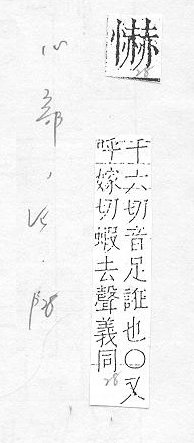 懗
28
千六切音足誑也〇又
呼嫁切蝦去聲義同
28
心部,
P28